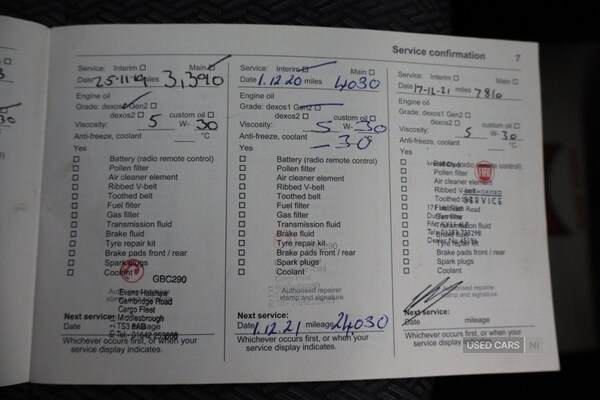 Service confirmation 7
Service: Interim Main
Date 25-11-19 miles 3,390
Engine oil
Grade: dexos1 Gen2
dexos2 custom oil
Viscosity: 5 W- 30
Anti-freeze, coolant °C
Yes
Battery (radio remote control)
Pollen filter
Air cleaner element
Ribbed V-belt
Toothed belt
Fuel filter
Gas filter
Transmission fluid
Brake fluid
Tyre repair kit
Brake pads front / rear
Spark plugs
Coolant
GBC290
Evans Halshaw
Cambridge Road
Cargo Fleet
Middlesbrough
TS3 8AB
Next service:
Date mileage
Whichever occurs first, or when your
service display indicates.
Service: Interim Main
Date 1.12.20 miles 4030
Engine oil
Grade: dexos1 Gen2
dexos2 custom oil
Viscosity: 5 W- 30
Anti-freeze, coolant -30 °C
Yes
Battery (radio remote control)
Pollen filter
Air cleaner element
Ribbed V-belt
Toothed belt
Fuel filter
Gas filter
Transmission fluid
Brake fluid
Tyre repair kit
Brake pads front / rear
Spark plugs
Coolant
Authorised repairer
stamp and signature
Next service:
Date 1.12.21 mileage 24,030
Whichever occurs first, or when your
service display indicates.
Service: Interim Main
Date 17-12-21 miles 7810
Engine oil
Grade: dexos1 Gen2
dexos2 custom oil
Viscosity: 5 W- 30
Anti-freeze, coolant °C
Yes
Pollen filter
FIAT
Air cleaner element
Ribbed V-belt
Toothed belt
SERVICE
Fuel filter
Gas filter
Transmission fluid
Brake fluid
Tyre repair kit
Brake pads front / rear
Spark plugs
Coolant
Authorised repairer
stamp and signature
Next service:
Date mileage
Whichever occurs first, or when your
service display indicates.
USED CARS NI